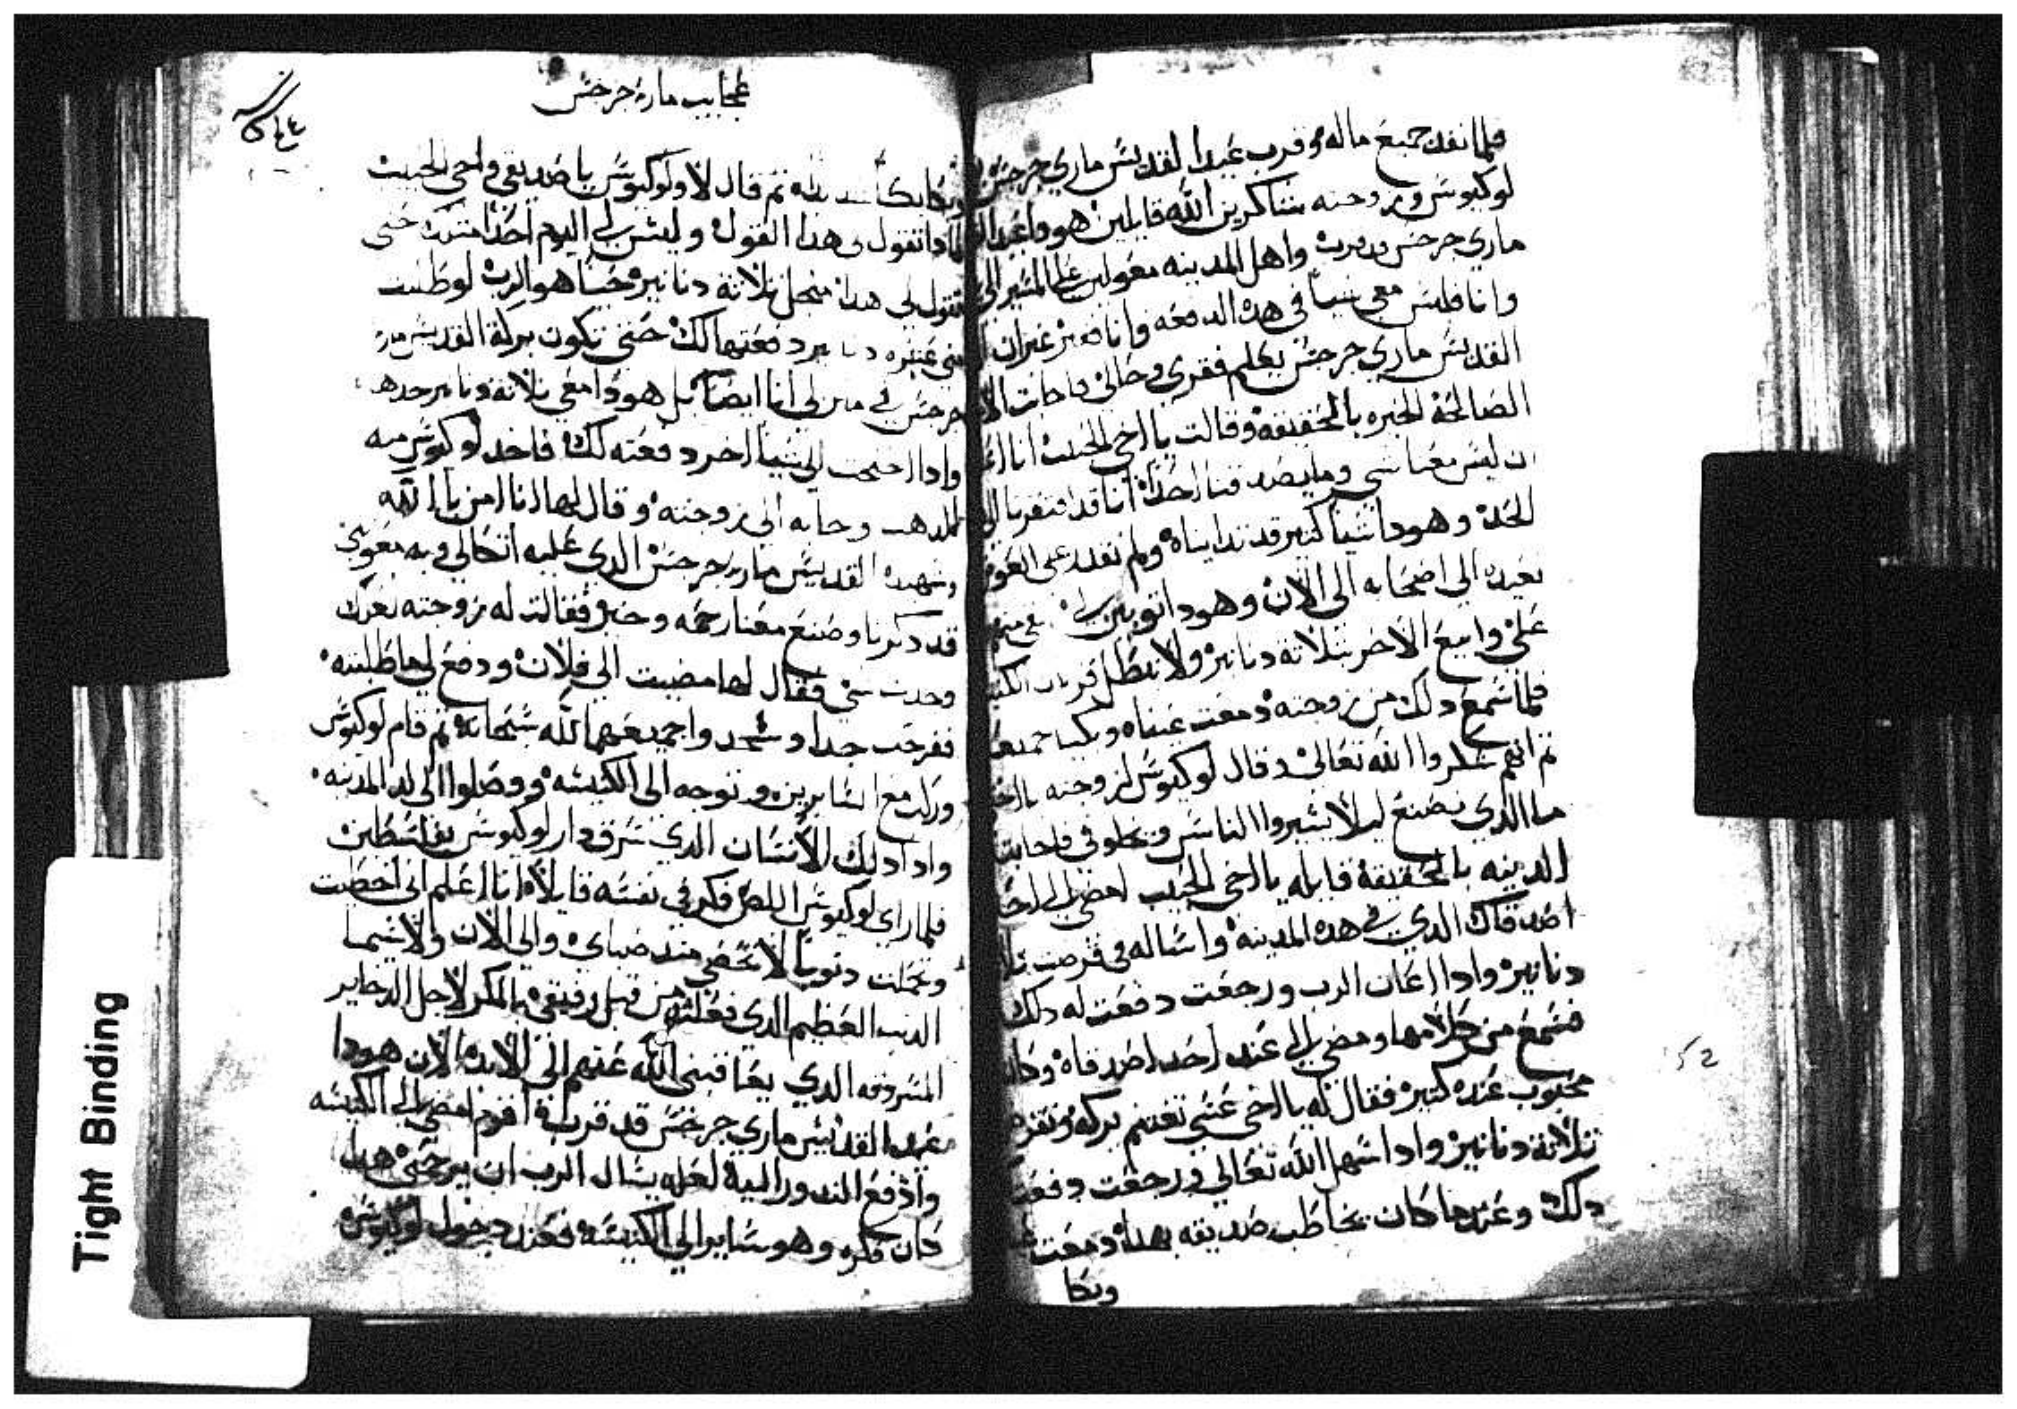 فلما نفد جميع ماله وقرب عيد القديس ماري جرجس
لوكيوس وزوجته شاكرين الله قايلين هودا عيد
ماري جرجس قد قرب واهل المدينه معولين على المسير الى
وانا فليس معي شيا في هده الدفعه وانا غير ان
القديس ماري جرجس يعلم فقري وحالي فاجابت
الصالحة الخيره بالحقيقة وقالت يا اخي الحبيب انا
ان ليس معنا شي وما يصدقنا احدا اننا قد افتقرنا الى
الحد وهودا شيا كتير قد تداينناه ولم نقدر على
نعيده الى اصحابه الى الان وهودا توبين لي
علي وابيع الاخر بتلاتة دنانير ولا نبطل قربان
فلما سمع دلك من زوجته دمعت عيناه وبكيا جميعا
تم انهم شكروا الله تعالى وقال لوكيوس لزوجته
ما الدي نصنع ليلا يسيروا الناس ونخلوا فاجابت
الدينه بالحقيقة قايله يا اخي الحبيب امضي الى احد
اصدقاك الدي في هده المدينة واساله في قرضت
دنانير وادا اعان الرب ورجعت دفعت له دلك
فسمع من كلامها ومضى الى عند احد اصدقاه وكان
محبوب عنده كتير فقال له يا اخي عسى تغتنم بركه وتقرضني
تلاتة دنانير وادا سهل الله تعالى ورجعت دفعت
دلك وعندما كان يخاطب صديقه بهدا دمعت
وبكا
عجايب ماري جرجس
وبكا بكا تم قال لاولوكيوس يا صديقي واخي الحبيب
لمادا تقول لي هدا القول وليس لي اليوم احدا متلك حتى
تقول لي هدا من اجل تلاتة دنانير حسنا هو الرب لو طلبت
مني عشره دنانير دفعتها لك حتى تكون بركة القديس مار
جرجس في منزلي انا ايضا بل هودا معي تلاتة دنانير خدهم
وادا احتجت الى شيا اخر دفعته لك فاخد لوكيوس منه
الدهب وجا به الى زوجته وقال لها انا امن بالله
وشهيده القديس ماري جرجس الدي عليه اتكالي وبه معونتي
قد دكرنا وصنع معنا رحمه وخير فقالت له زوجته لعلك
وجدت شي فقال لها مضيت الى فلان ودفع لي ما طلبته
ففرحت جدا ومجدوا جميعهما الله سبحانه تم قام لوكيوس
وركب مع السايرين وتوجه الى الكنيسه ووصلوا الى لد المدينه
وادا دلك الانسان الدي سرق دار لوكيوس بفلسطين
فلما راى لوكيوس اللص فكر في نفسه قايلا انا اعلم انى اخطيت
وعملت دنوبا لا تحصى مند صباي والى الان ولا سيما
الدنب العظيم الدي فعلته من قبل رفيقي بالمكر لاجل الدخاير
المسروقه الدي يعاقبني الله عنهم الى الابد الان هودا
عيد القديس ماري جرجس قد قرب اقوم امضي الى الكنيسه
وادفع الندور اليه لعله يسال الرب ان يرحمني هدا
كان فكره وهو ساير الى الكنيسه فعند دخول لوكيوس